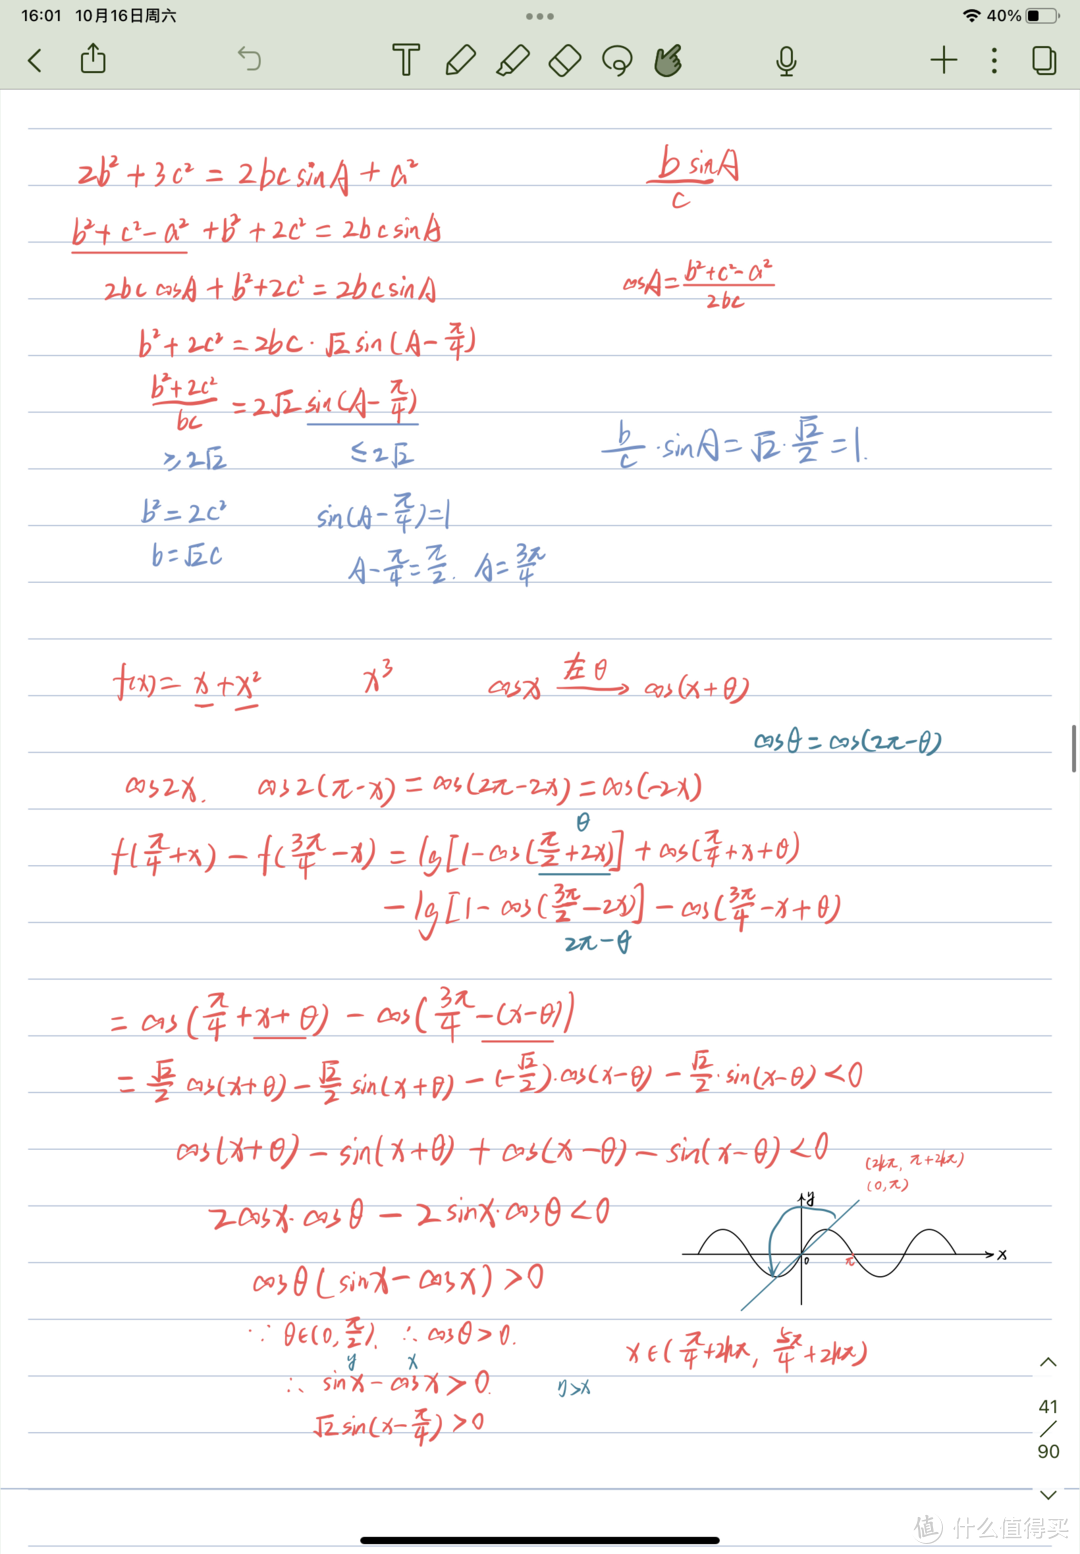 16:01 10月16日周六 40%
2b²+3c² = 2bc sinA + a²
b sinA / c
b²+c²-a² +b²+2c² = 2bcsinA
2bc cosA + b²+2c² = 2bcsinA
cosA = (b²+c²-a²)/2bc
b²+2c² = 2bc·√2 sin(A-π/4)
(b²+2c²)/bc = 2√2 sin(A-π/4)
≥2√2 ≤2√2
b/c ·sinA = √2·√2/2 = 1.
b²=2c² sin(A-π/4)=1
b=√2c A-π/4=π/2. A=3π/4
f(x)= x+x² x³ cosx 左θ → cos(x+θ)
cosθ = cos(2π-θ)
cos2x. cos2(π-x) = cos(2π-2x) = cos(-2x)
θ
f(π/4+x) - f(3π/4-x) = lg[1-cos(π/2+2x)] + cos(π/4+x+θ)
- lg[1-cos(3π/2-2x)] - cos(3π/4-x+θ)
2π-θ
= cos(π/4+x+θ) - cos(3π/4-(x-θ))
= √2/2 cos(x+θ) - √2/2 sin(x+θ) - (-√2/2)·cos(x-θ) - √2/2·sin(x-θ) <0
cos(x+θ) - sin(x+θ) + cos(x-θ) - sin(x-θ) <0
(2kπ, π+2kπ)
(0,π)
2cosx·cosθ - 2sinx·cosθ <0
y
x
0
π
cosθ(sinx-cosx) >0
∵ θ∈(0,π/2) ∴ cosθ>0.
x∈(π/4+2kπ, 5π/4+2kπ)
y x
∴ sinx-cosx>0. y>x
√2sin(x-π/4)>0
41
/
90
值 什么值得买